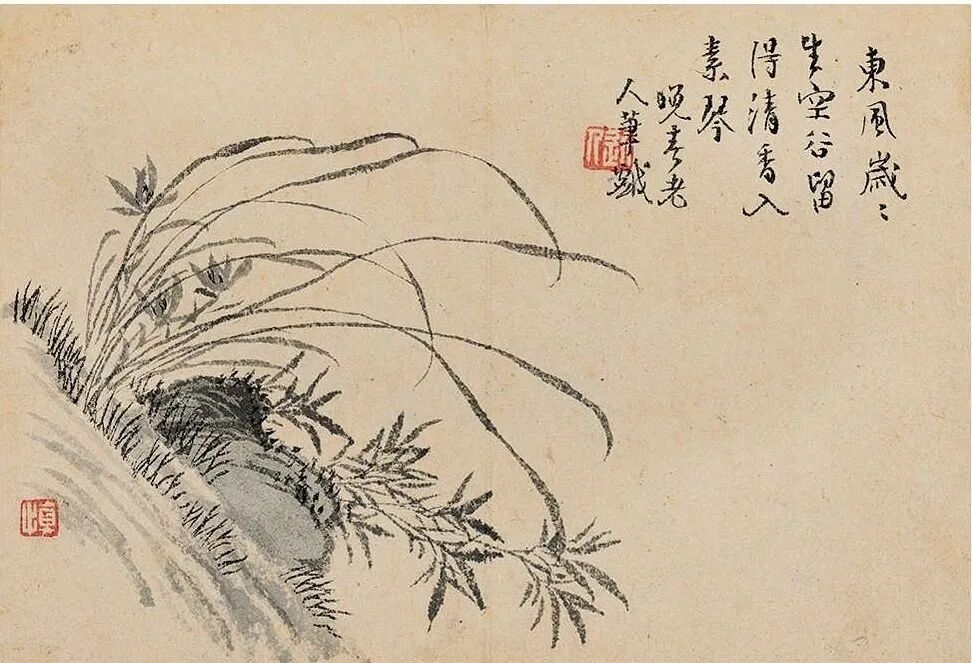 東風歲〻
生空谷留
得清香入
素琴
晚春老
人筆戲